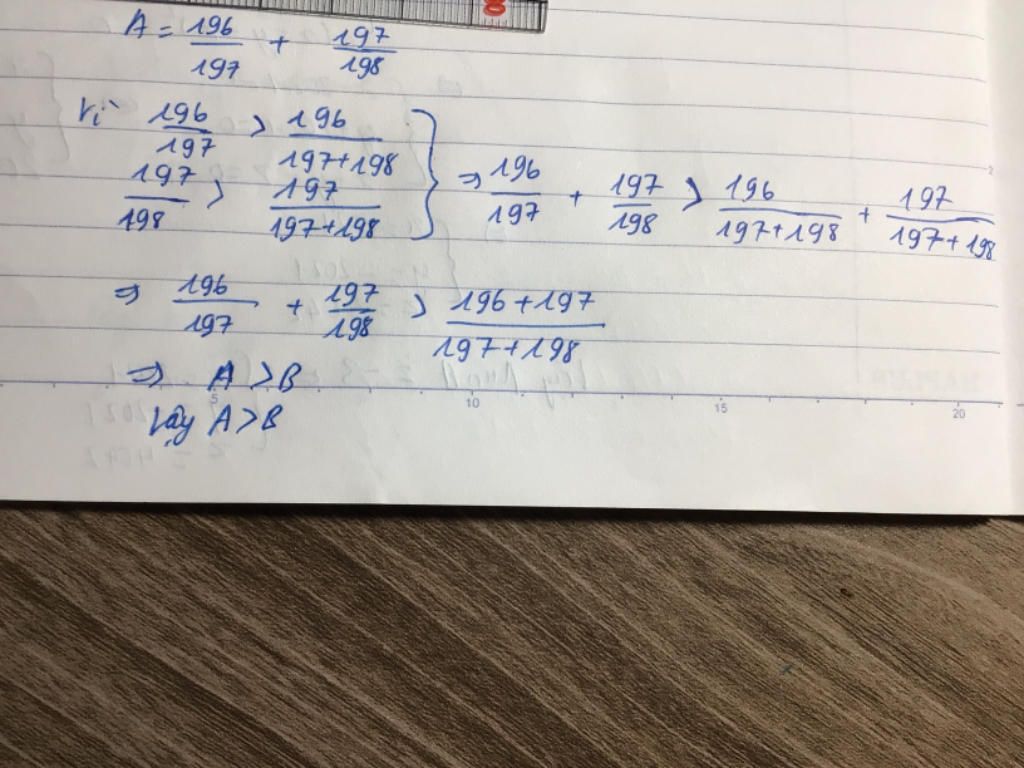 A = 196/197 + 197/198
Vì 196/197 > 196/(197+198)
197/198 > 197/(197+198) } ⇒ 196/197 + 197/198 > 196/(197+198) + 197/(197+198)
⇒ 196/197 + 197/198 > (196+197)/(197+198)
⇒ A > B
5 10 15 20
Vậy A > B